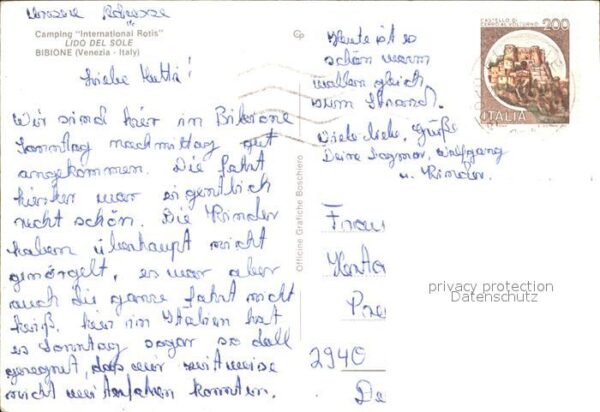 Unsere Adresse
Camping "International Rotis"
LIDO DEL SOLE
BIBIONE (Venezia - Italy)
Liebe Mutti!
Wir sind hier in Bibione
Sonntag nachmittag gut
angekommen. Die fahrt
hierher war eigentlich
recht schön. Die Kinder
haben überhaupt nicht
genörgelt, es war aber
auch die ganze fahrt nicht
heiß, hier in Italien hat
es Sonntag sogar so doll
geregnet, das wir zeitweise
nicht weiterfahren konnten.
Cp
Officine Grafiche Boschiero
Heute ist es
schön warm
wollen gleich
zum Strand.
Viele liebe Grüße
Deine Dagmar, Wolfgang
u. Kinder.
CASTELLO DI
CERRO AL VOLTURNO
200
ITALIA
Frau
Herta
privacy protection
Datenschutz
2940